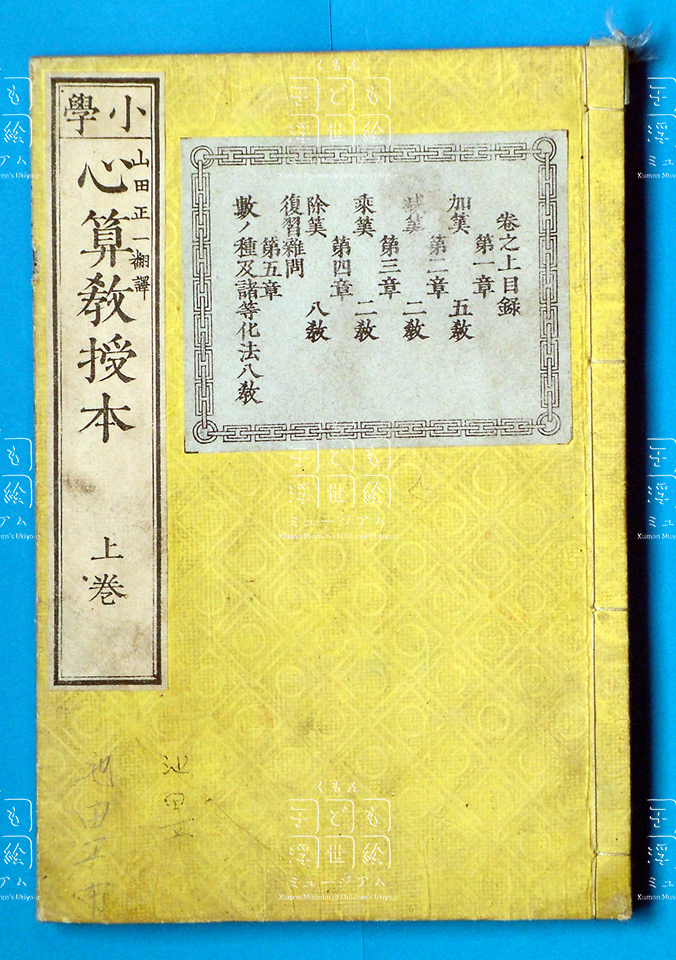 小學
山田正一翻譯
心算教授本
上巻
卷之上目錄
第一章
加筭 五教
第二章
減筭 二教
第三章
乘筭 二教
第四章
除筭 八教
復習雜問
第五章
數ノ種及諸等化法八教
池田
くもん
子ども
浮世絵
ミュージアム
Kumon Museum of Children's Ukiyo-e